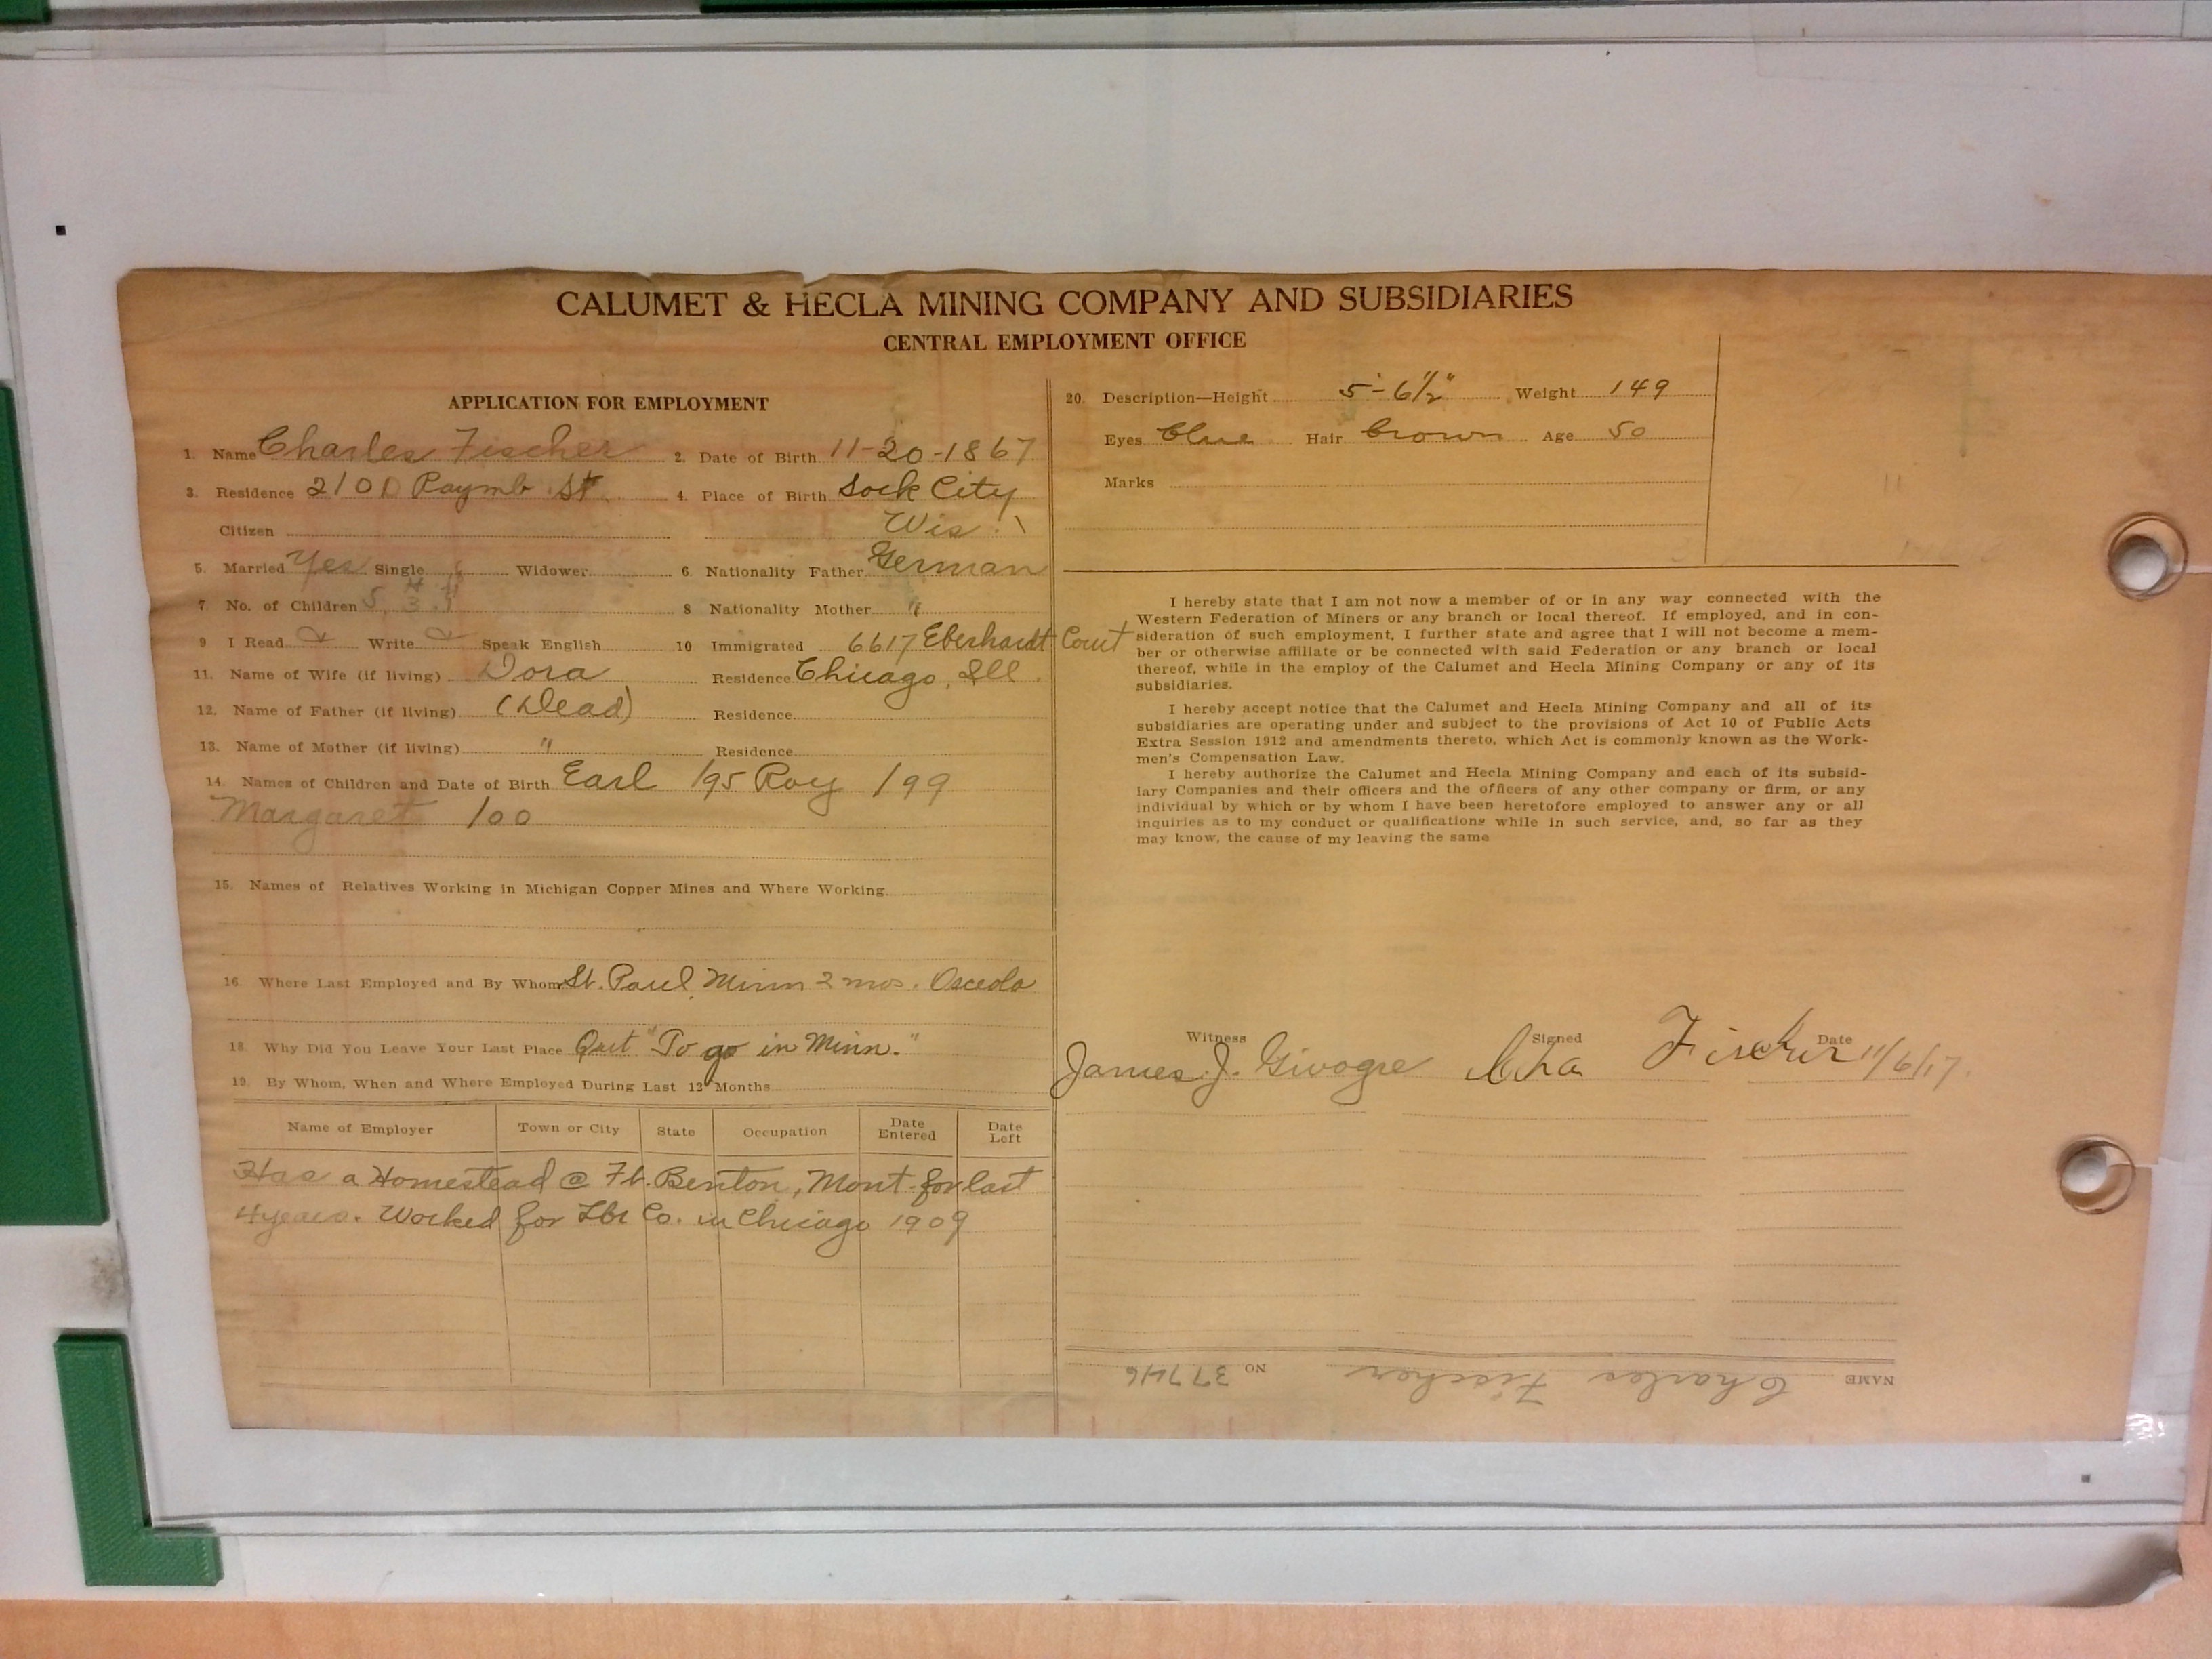 CALUMET & HECLA MINING COMPANY AND SUBSIDIARIES
CENTRAL EMPLOYMENT OFFICE
APPLICATION FOR EMPLOYMENT
1. Name Charles Fischer 2. Date of Birth 11-20-1867
3. Residence 2101 Raymb St. 4. Place of Birth Sock City
Citizen Wis.
5. Married Yes Single Widower 6. Nationality Father German
7 No. of Children 8 Nationality Mother "
9 I Read Write Speak English 10 Immigrated 6617 Eberhardt Court
11. Name of Wife (if living) Dora Residence Chicago, Ill.
12. Name of Father (if living) (Dead) Residence
13. Name of Mother (if living) " Residence
14. Names of Children and Date of Birth Earl /95 Roy /99
Margaret /00
15. Names of Relatives Working in Michigan Copper Mines and Where Working
16. Where Last Employed and By Whom St. Paul, Minn 2 mos. Osceola
18. Why Did You Leave Your Last Place Quit "To go in Minn."
19. By Whom, When and Where Employed During Last 12 Months
Name of Employer Town or City State Occupation Date Entered Date Left
Has a Homestead @ Ft. Benton, Mont. for last
4 years. Worked for Lbr Co. in Chicago 1909
20. Description—Height 5'-6 1/2" Weight 149
Eyes blue Hair brown Age 50
Marks
I hereby state that I am not now a member of or in any way connected with the
Western Federation of Miners or any branch or local thereof. If employed, and in con-
sideration of such employment, I further state and agree that I will not become a mem-
ber or otherwise affiliate or be connected with said Federation or any branch or local
thereof, while in the employ of the Calumet and Hecla Mining Company or any of its
subsidiaries.
I hereby accept notice that the Calumet and Hecla Mining Company and all of its
subsidiaries are operating under and subject to the provisions of Act 10 of Public Acts
Extra Session 1912 and amendments thereto, which Act is commonly known as the Work-
men's Compensation Law.
I hereby authorize the Calumet and Hecla Mining Company and each of its subsid-
iary Companies and their officers and the officers of any other company or firm, or any
individual by which or by whom I have been heretofore employed to answer any or all
inquiries as to my conduct or qualifications while in such service, and, so far as they
may know, the cause of my leaving the same
Witness Signed Date
James J. Givogre Cha Fischer 11/6/17.
NAME Charles Fischer NO 37746